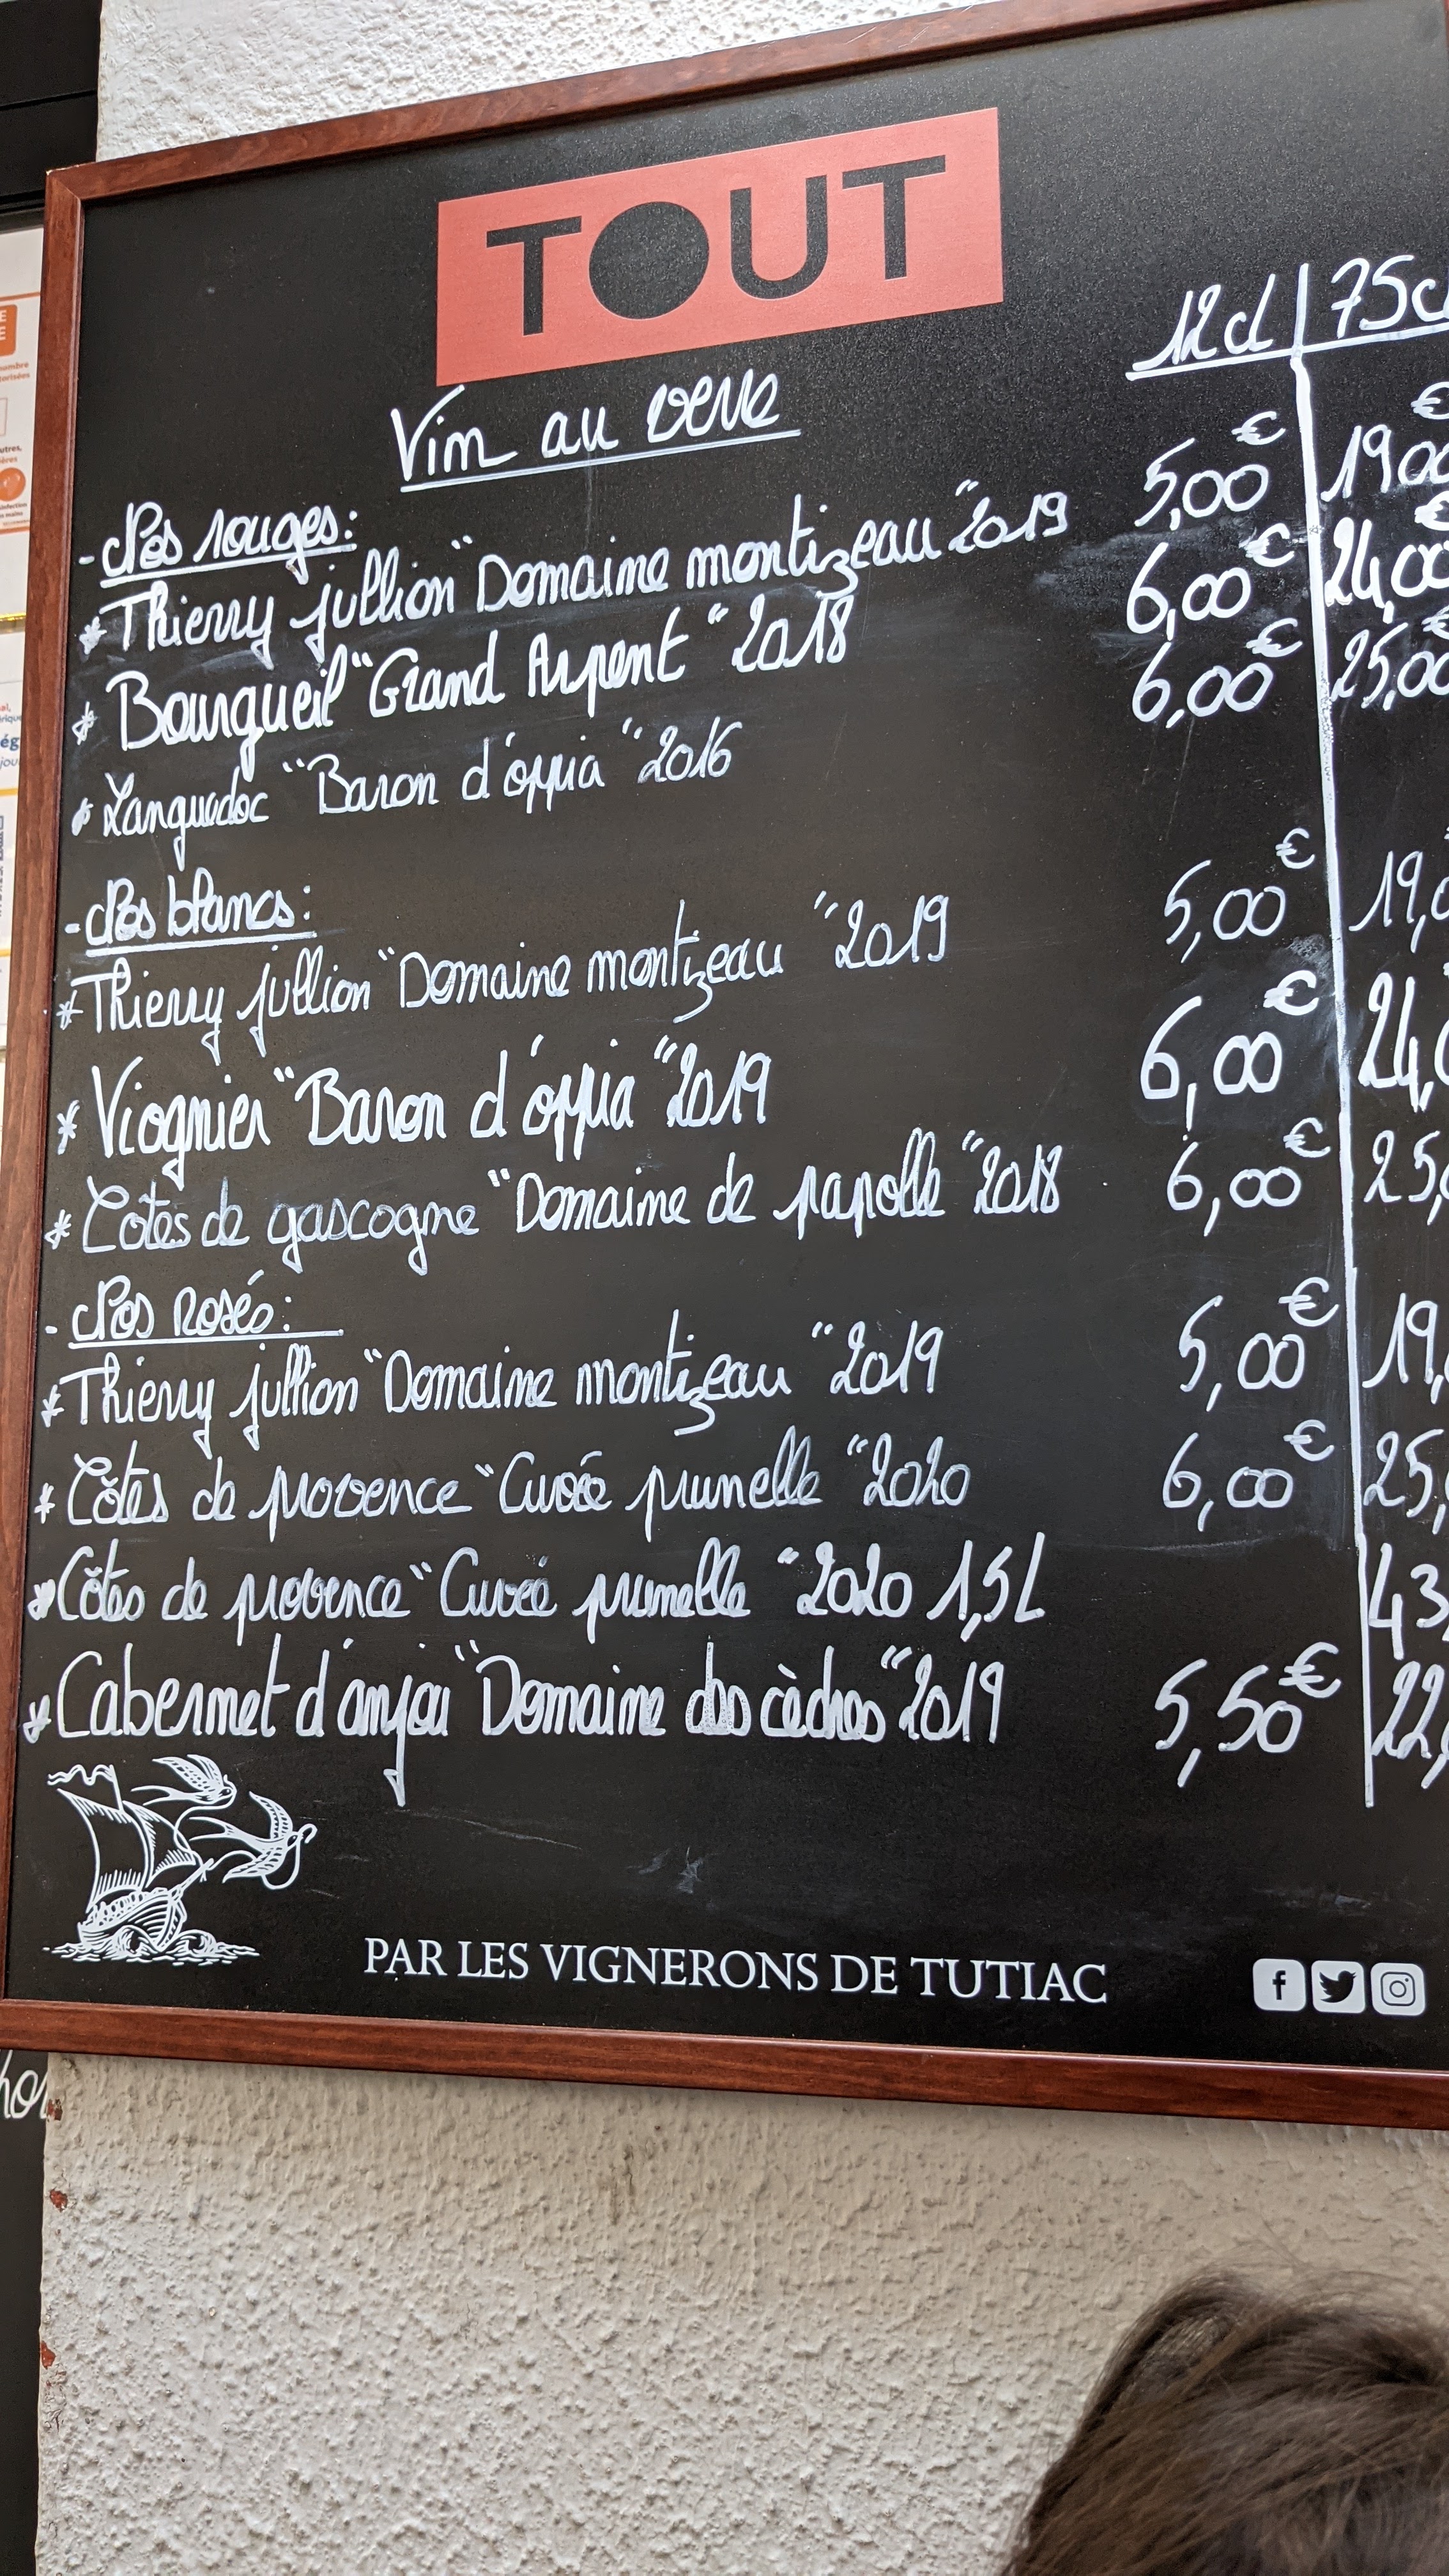 TOUT
12cl 75cl
Vin au verre
- Nos rouges:
* Thierry jullion "Domaine montizeau" 2019 5,00€ 19,00€
* Bourgueil "Grand Arpent" 2018 6,00€ 24,00€
* Languedoc "Baron d'oppia" 2016 6,00€ 25,00€
- Nos blancs:
* Thierry jullion "Domaine montizeau" 2019 5,00€ 19,0
* Viognier "Baron d'oppia" 2019 6,00€ 24,0
* Côtes de gascogne "Domaine de papolle" 2018 6,00€ 25,
- Nos Rosés:
* Thierry jullion "Domaine montizeau" 2019 5,00€ 19,
* Côtes de provence "Cuvée prunelle" 2020 6,00€ 25,
* Côtes de provence "Cuvée prunelle" 2020 1,5L 43,
* Cabernet d'anjou "Domaine des cèdres" 2019 5,50€ 22,
PAR LES VIGNERONS DE TUTIAC